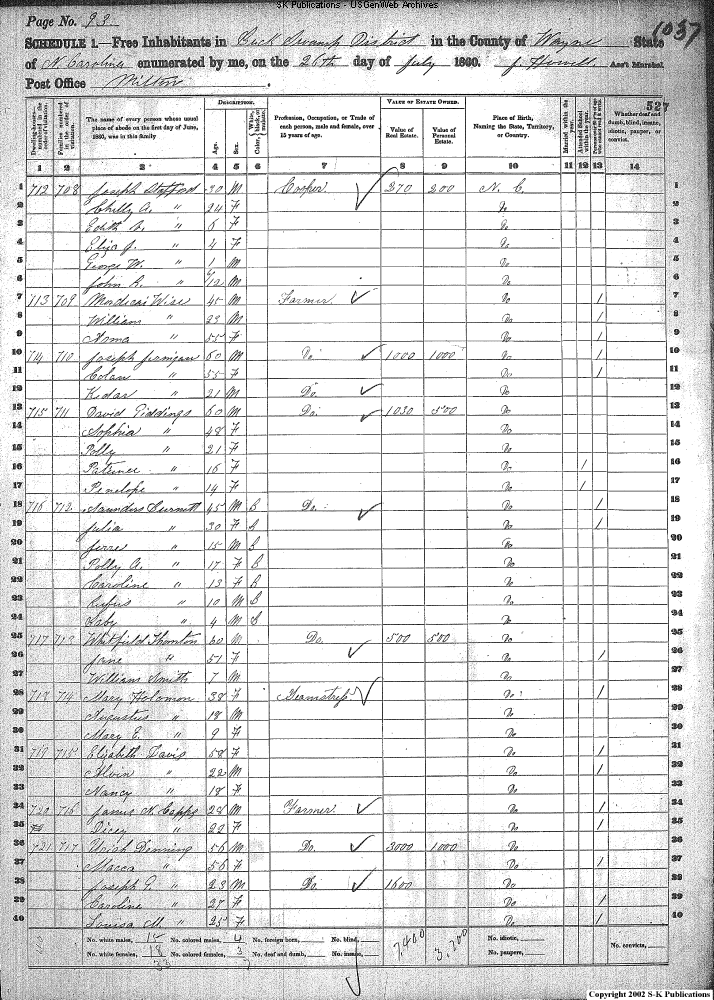 SK Publications - USGenWeb Archives
Page No. 93
1037
SCHEDULE 1.—Free Inhabitants in Buck Swamp District in the County of Wayne State
of N. Carolina enumerated by me, on the 26th day of July 1860. J. Howell Ass't Marshal.
Post Office Milton.
527
Dwelling-houses numbered in the order of visitation. Families numbered in the order of visitation. The name of every person whose usual place of abode on the first day of June, 1860, was in this family DESCRIPTION. Age. Sex. Color, White, black, or mulatto. Profession, Occupation, or Trade of each person, male and female, over 15 years of age. VALUE OF ESTATE OWNED. Value of Real Estate. Value of Personal Estate. Place of Birth, Naming the State, Territory, or Country. Married within the year. Attended School within the year. Whether deaf and dumb, blind, insane, idiotic, pauper, or convict.
1 2 3 4 5 6 7 8 9 10 11 12 13 14
1 712 708 Joseph Stafford 30 M Cooper 270 200 N. C. 1
2 Chelly A. " 24 F Do 2
3 Edith A. " 6 F Do 3
4 Eliza J. " 4 F Do 4
5 George W. " 1 M Do 5
6 John R. " 9/12 M Do 6
7 713 709 Mordicai Wise 45 M Farmer Do / 7
8 William " 23 M Do / 8
9 Anna " 55 F Do / 9
10 714 710 Joseph Jernigan 60 M Do 1000 1000 Do / 10
11 " 55 F Do / 11
12 Kedar " 21 M Do. Do 12
13 715 711 David Giddings 60 M Do. 1030 500 Do 13
14 Sophia " 48 F Do 14
15 Polly " 21 F Do 15
16 " 16 F Do / 16
17 Penelope " 14 F Do / 17
18 716 712 Saunders Burnett 45 M B Do. Do / 18
19 Julia " 30 F B Do / 19
20 " 15 M B Do 20
21 Polly A. " 17 F B Do 21
22 Caroline " 13 F B Do 22
23 Rufus " 10 M B Do 23
24 " 4 M B Do 24
25 717 713 Whitfield Thornton 60 M Do. 500 500 Do 25
26 Jane " 51 F Do / 26
27 William Smith 7 M Do 27
28 718 714 Mary Holomon 38 F Seamstress Do / 28
29 Augustus " 18 M Do 29
30 Mary E. " 9 F Do 30
31 719 715 Elizabeth Davis 58 F Do / 31
32 Alvin " 22 M Do / 32
33 Nancy " 18 F Do 33
34 720 716 James N. Capps 28 M Farmer Do / 34
35 Dicey " 22 F Do / 35
36 721 717 Uriah Denning 56 M Do. 3000 1000 Do 36
37 Macca " 56 F Do / 37
38 Joseph G. " 23 M Do. 1600 Do 38
39 Caroline " 27 F Do / 39
40 Louisa M. " 25 F Do / 40
No. white males, 15 No. colored males, 4 No. foreign born, No. blind, 7,400 3,700 No. idiotic, No. convicts,
No. white females, 18 No. colored females, 3 No. deaf and dumb, No. insane, No. paupers,
33 7
Copyright 2002 S-K Publications